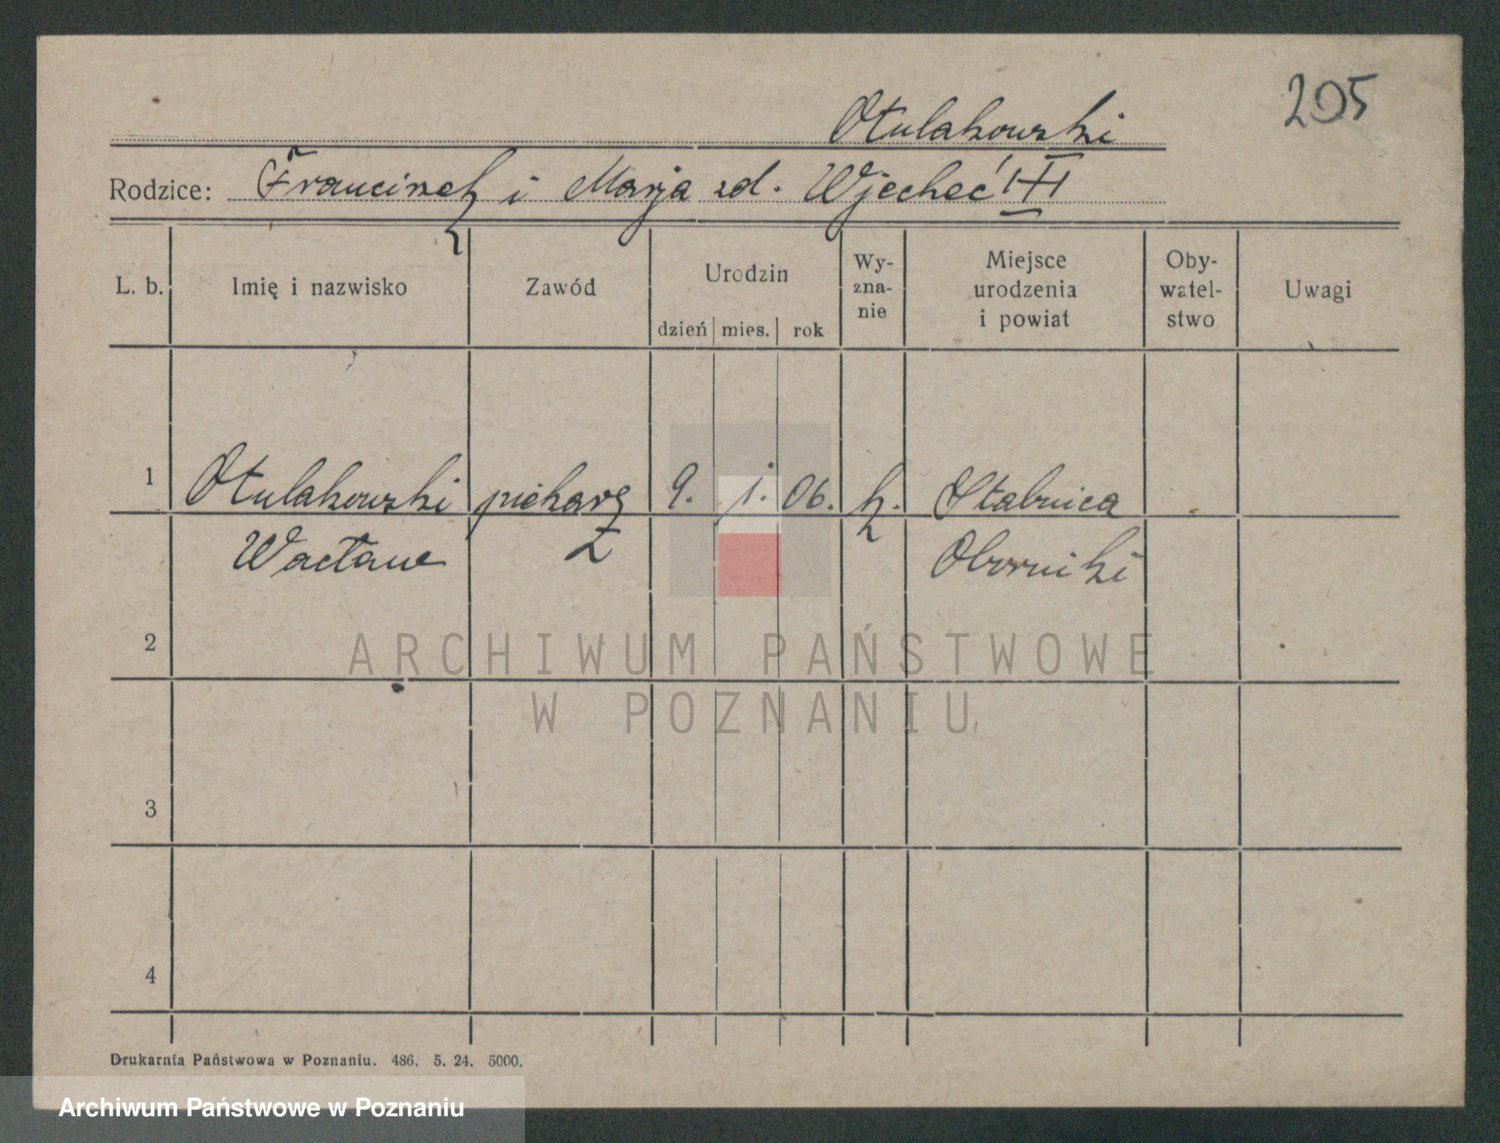 205
Otulakowski
Rodzice: Franciszek i Marja zd. Wjecheć III
L. b. Imię i nazwisko Zawód Urodzin dzień mies. rok Wy-zna-nie Miejsce urodzenia i powiat Oby-watel-stwo Uwagi
1 Otulakowski piekarz 9. 1. 06. k. Stabnica
Wacław Z Oborniki
2
ARCHIWUM PAŃSTWOWE
W POZNANIU
3
4
Drukarnia Państwowa w Poznaniu. 486. 5. 24. 5000.
Archiwum Państwowe w Poznaniu